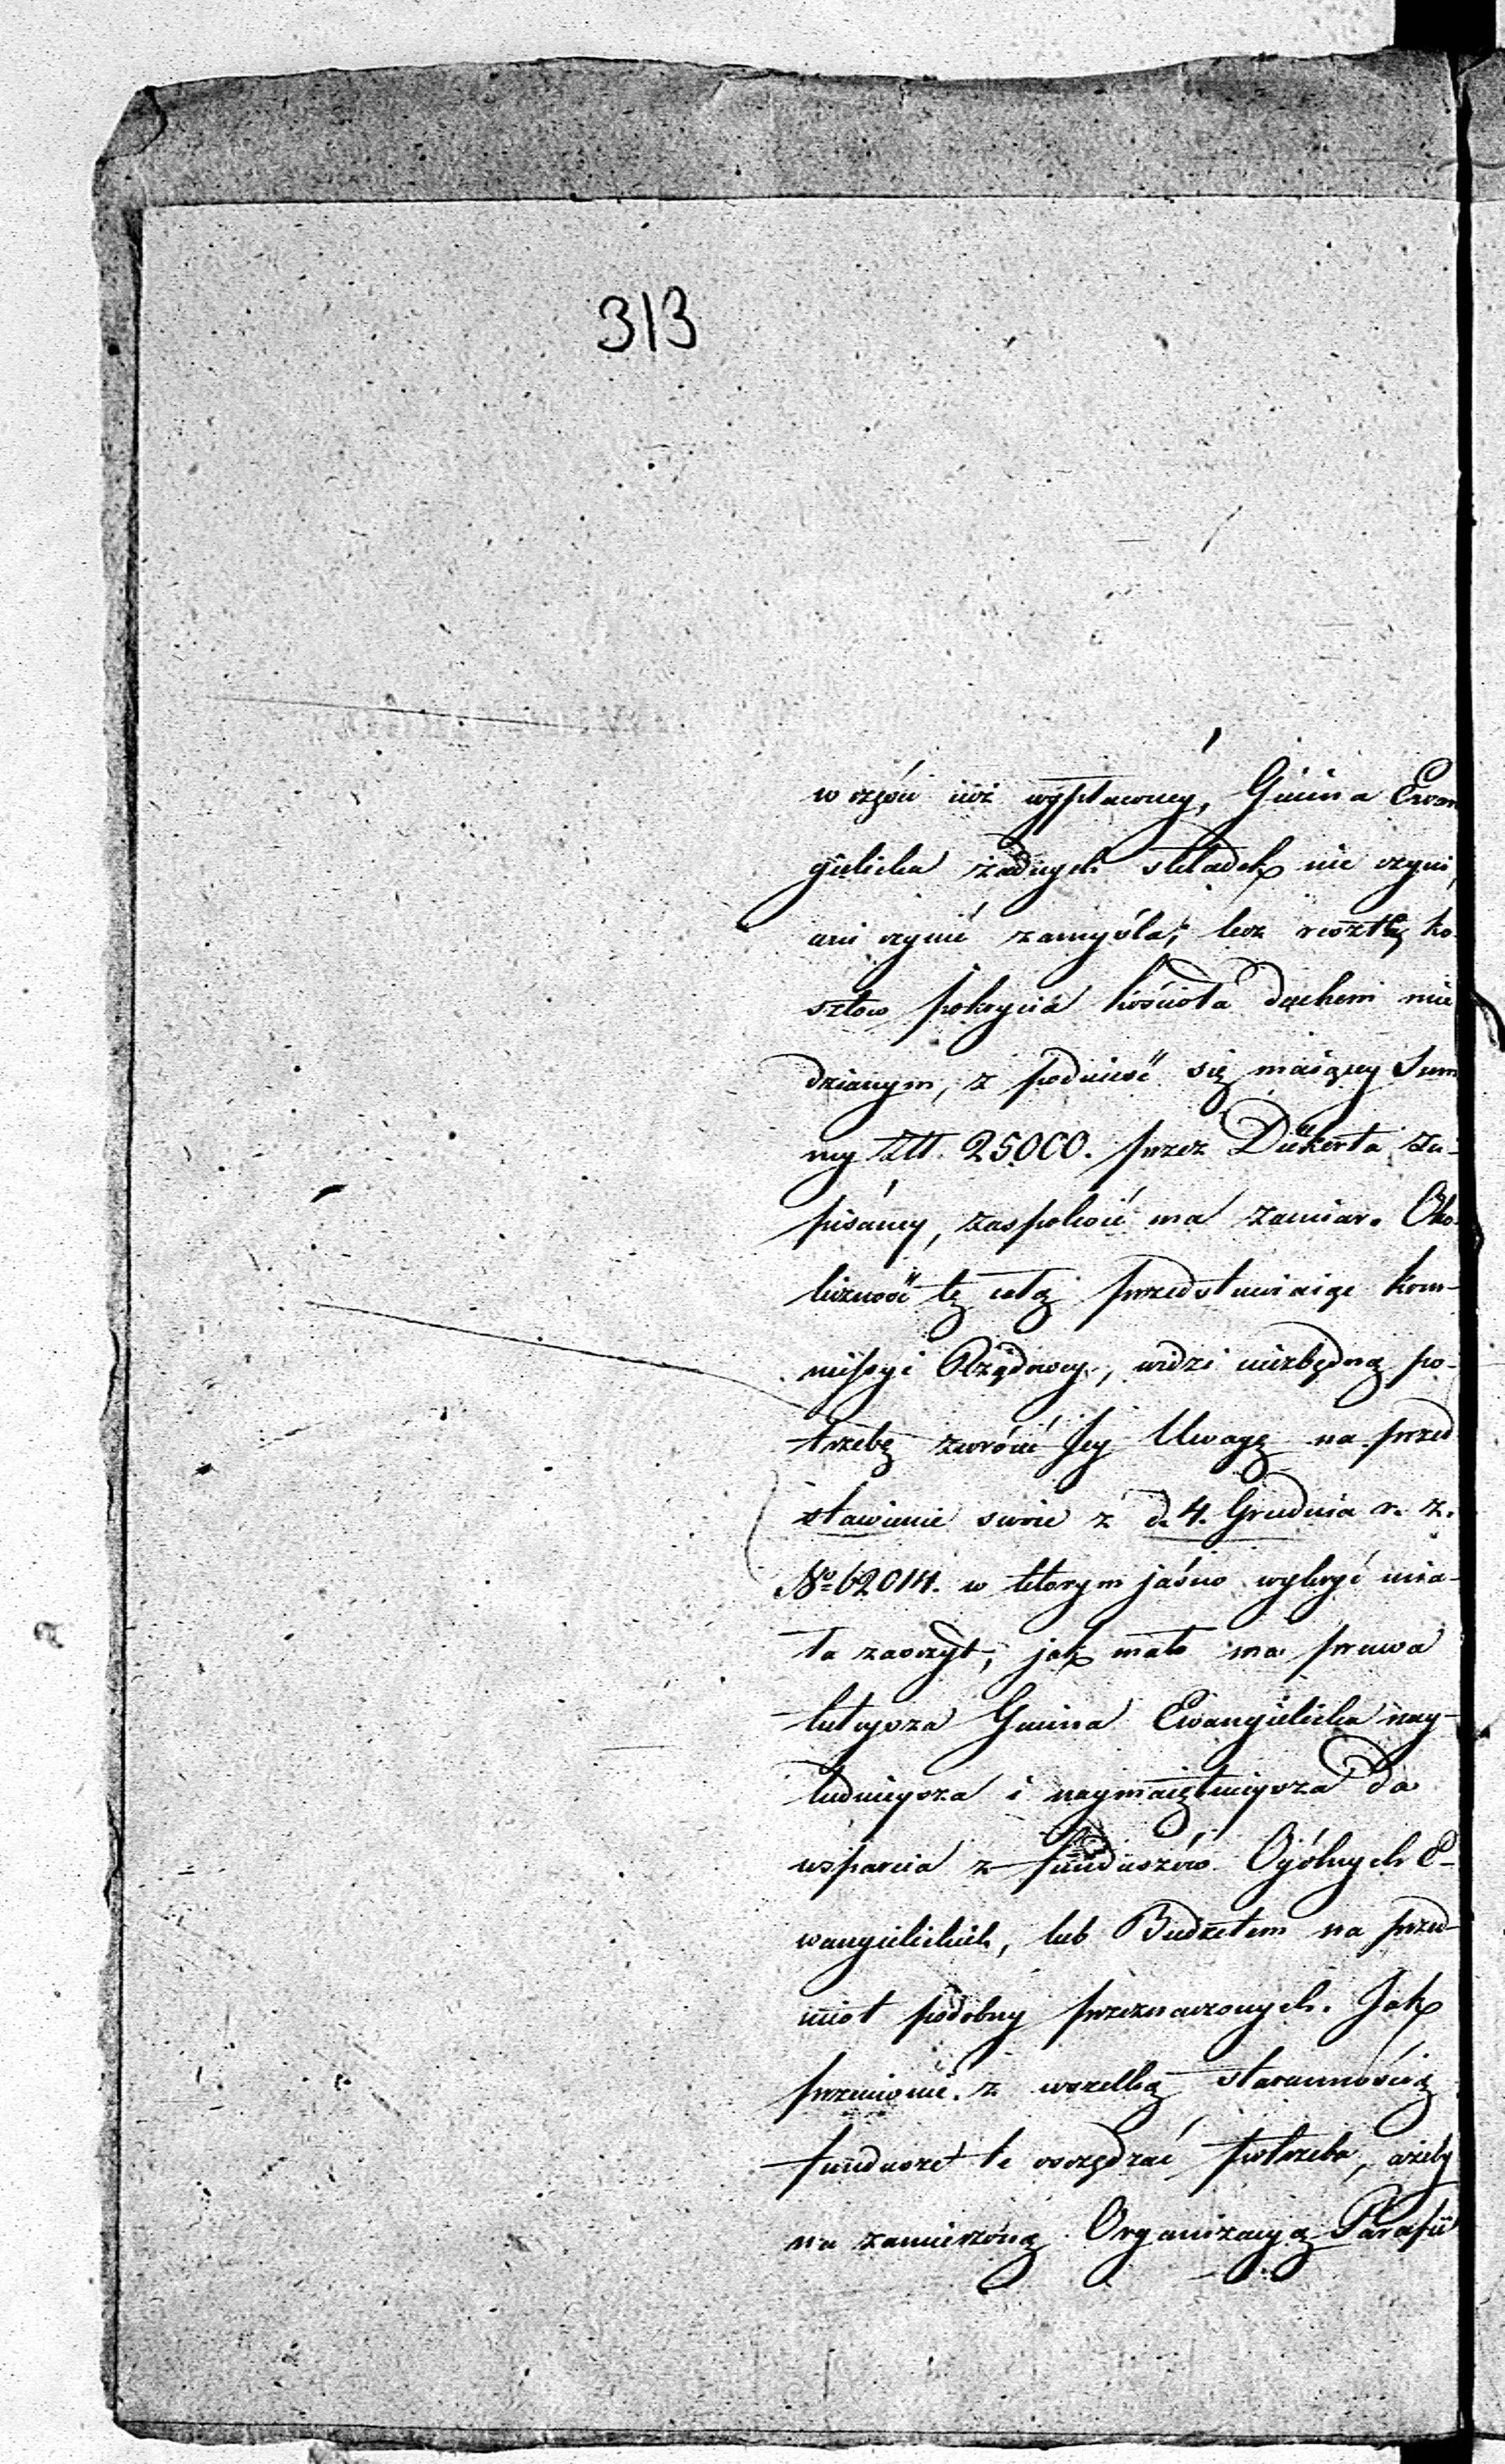 313
w części iuż wystawney, Gmina Ewan
gielicka żadnych składek nie czyni,
ani czynić zamyśla; lecz resztę ko-
sztów pokrycia kościoła dachem mie
dzianym, z podnieść się maiącey Sum
my Złł. 25000. przez Dükerta za-
pisaney, zaspokoić ma zamiar. Oko-
liczność tę całą przedstawiaiąc Kom-
missyi Rządowey, widzi niezbędną po-
trzebę zwrócić Jey Uwagę na przed
stawienie swoie z d. 4. Grudnia r. z.
No 62014. w którym jaśno wykryć mia-
ła zaszczyt, jak mało ma prawa
tuteysza Gmina Ewangielicka nay-
ludnieysza i naymaiętnieysza do
wsparcia z funduszów Ogólnych E-
wangielickich, lub Budżetem na przed-
miot podobny przeznaczonych. Jak
przeciwnie z wszelką starannością
fundusze te oszczędzać potrzeba, ażeby
na zamierzoną Organizacyą Parafii